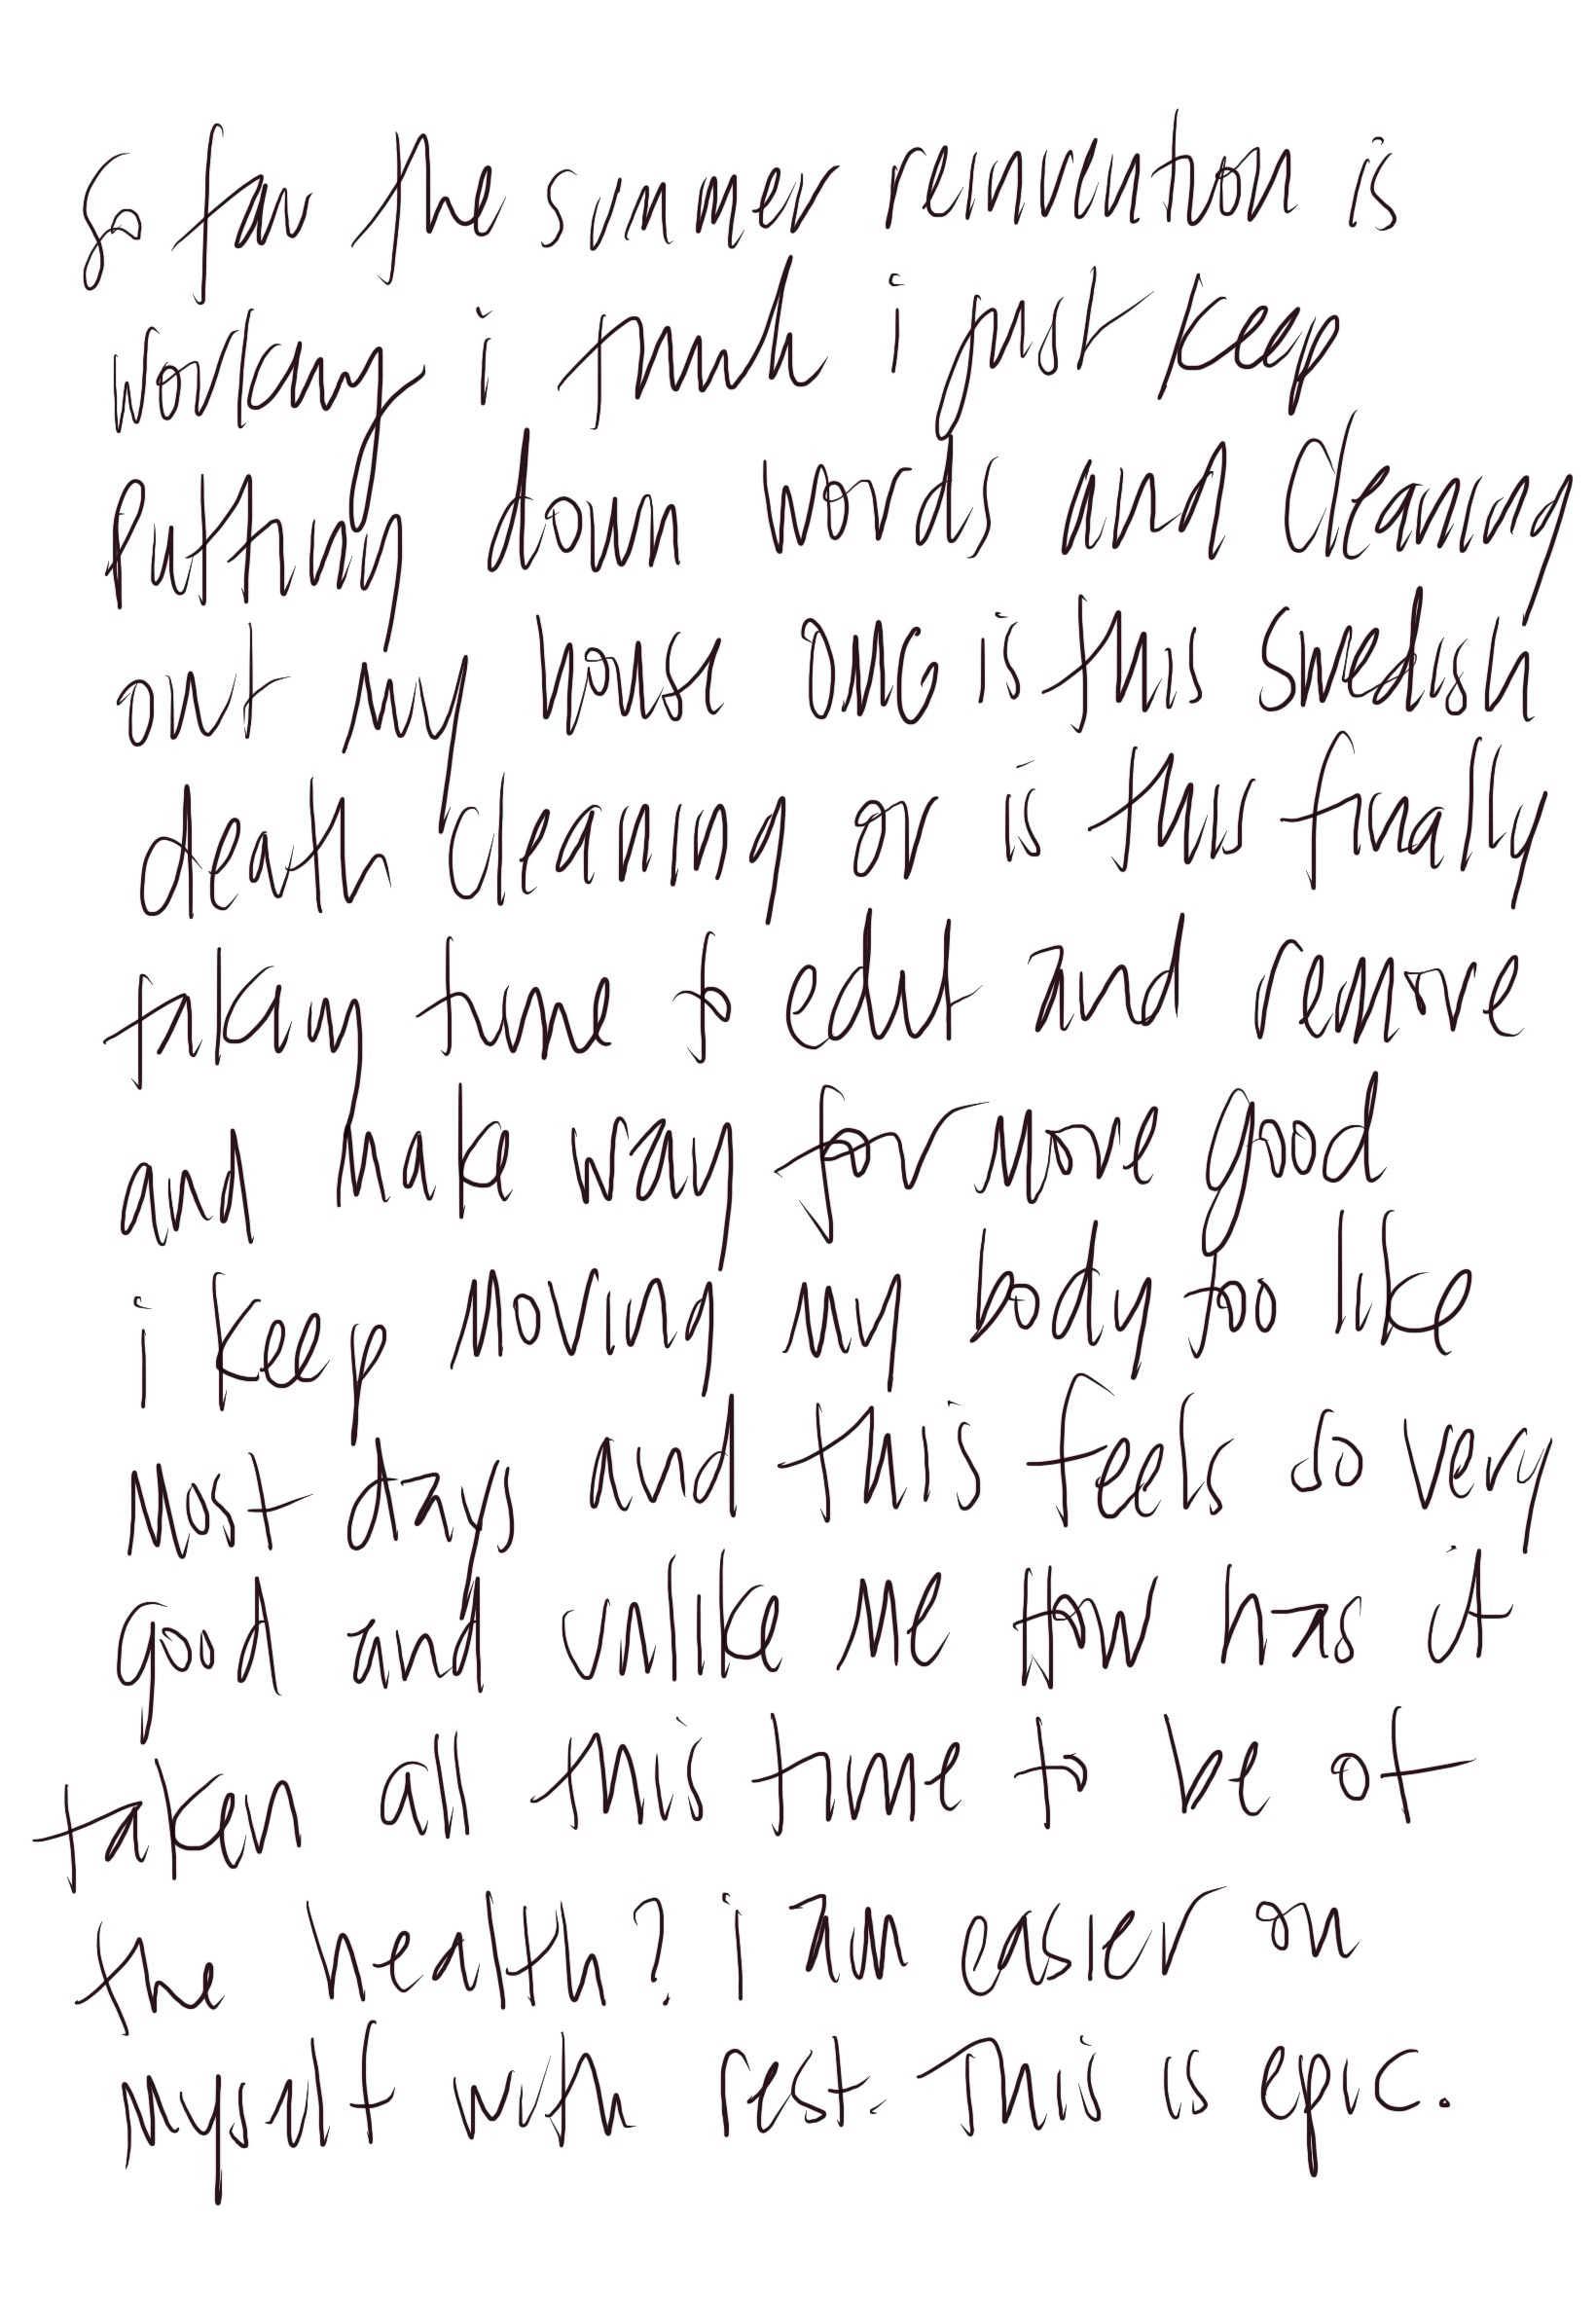 So far the summer renovation is
working i think i just keep
putting down words and cleaning
out my house OMG is this swedish
death cleaning or is this finally
taking time to edit and remove
and make way for more good
i keep moving my body too like
most days and this feels so very
good and unlike me how has it
taken all this time to be of
the health? i am easier on
myself with rest. This is epic.